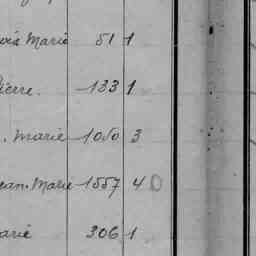 Marie 51 1
Pierre. 133 1
. Marie 1050 3
ean-Marie 1557 4 0
arie 306 1